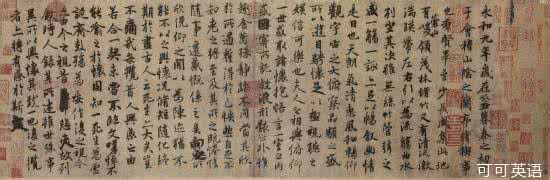 永和九年歲在癸丑暮春之初會
于會稽山陰之蘭亭脩禊事
也群賢畢至少長咸集此地
有崇山峻領茂林脩竹又有清流激
湍暎帶左右引以為流觴曲水
列坐其次雖無絲竹管弦之
盛一觴一詠亦足以暢敘幽情
是日也天朗氣清惠風和暢仰
觀宇宙之大俯察品類之盛
所以遊目騁懷足以極視聽之
娛信可樂也夫人之相與俯仰
一世或取諸懷抱悟言一室之內
或因寄所託放浪形骸之外雖
趣舍萬殊靜躁不同當其欣
於所遇暫得於己怏然自足不
知老之將至及其所之既惓情
隨事遷感慨係之矣向之所
欣俛仰之間以為陳迹猶不
能不以之興懷況脩短隨化終
期於盡古人云死生亦大矣豈
不痛哉每攬昔人興感之由
若合一契未嘗不臨文嗟悼不
能喻之於懷固知一死生為虛
誕齊彭殤為妄作後之視今
亦由今之視昔悲夫故列
敘時人錄其所述雖世殊事
異所以興懷其致一也後之攬
者亦將有感於斯文
可可英语